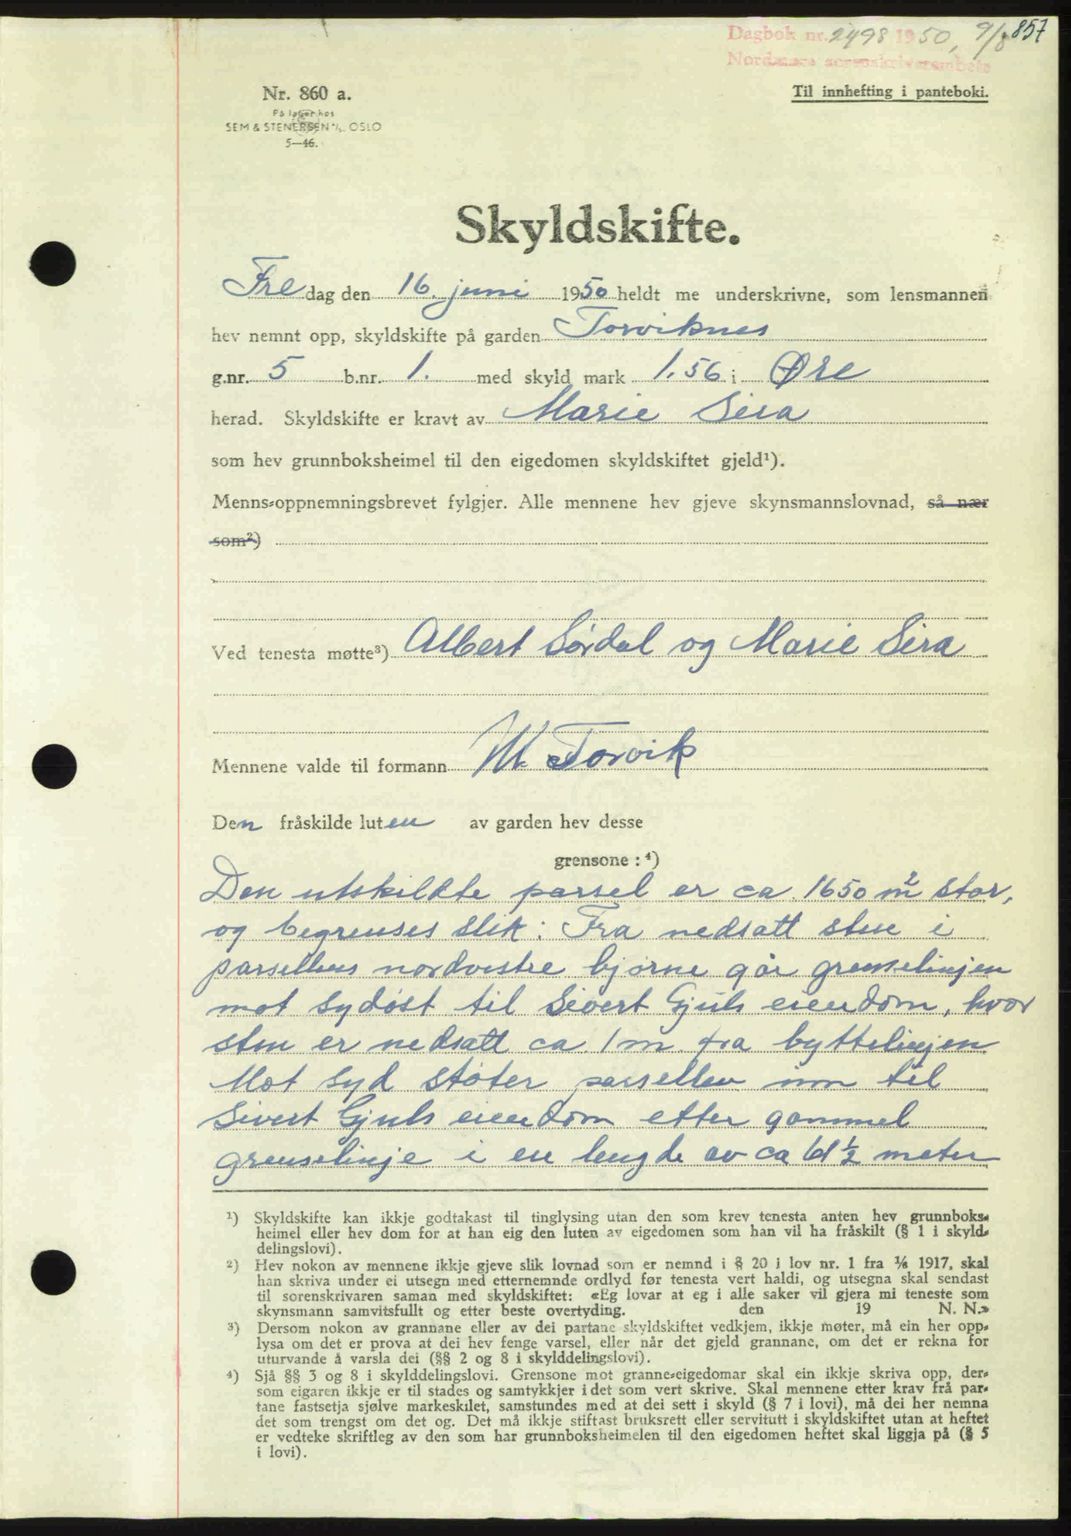 Dagbok nr. 2498 1950, 9/8 857
Nordmøre sorenskriverembete
Nr. 860 a.
På lager hos
SEM & STENERSEN A/S, OSLO
5—46.
Til innhefting i panteboki.
Skyldskifte.
Fredag den 16. juni 1950 heldt me underskrivne, som lensmannen
hev nemnt opp, skyldskifte på garden Torviknes
g.nr. 5 b.nr. 1. med skyld mark 1.56 i Øre
herad. Skyldskifte er kravt av Marie Sira
som hev grunnboksheimel til den eigedomen skyldskiftet gjeld¹).
Menns-oppnemningsbrevet fylgjer. Alle mennene hev gjeve skynsmannslovnad, så nær
som²)
Ved tenesta møtte³) Albert Sørdal og Marie Sira
Mennene valde til formann M. Torvik
Den fråskilde luten av garden hev desse
grensone : ⁴)
Den utskildte parsel er ca. 1650 m² stor,
og begrenses slik: Fra nedsatt sten i
parsellens nordvestre hjørne går grenselinjen
mot sydøst til Sivert Gjuls eiendom, hvor
sten er nedsatt ca 1 m fra byttelinjen
Mot syd støter parsellen inn til
Sivert Gjuls eiendom etter gammel
grenselinje i en lengde av ca 61 ½ meter
¹) Skyldskifte kan ikkje godtakast til tinglysing utan den som krev tenesta anten hev grunnboks-
heimel eller hev dom for at han eig den luten av eigedomen som han vil ha fråskilt (§ 1 i skyld-
delingslovi).
²) Hev nokon av mennene ikkje gjeve slik lovnad som er nemnd i § 20 i lov nr. 1 fra 1/6 1917, skal
han skriva under ei utsegn med etternemnde ordlyd før tenesta vert haldi, og utsegna skal sendast
til sorenskrivaren saman med skyldskiftet: «Eg lovar at eg i alle saker vil gjera mi teneste som
skynsmann samvitsfullt og etter beste overtyding. den 19 N. N.»
³) Dersom nokon av grannane eller av dei partane skyldskiftet vedkjem, ikkje møter, må ein her opp-
lysa om det er prova at dei hev fenge varsel, eller når det gjeld grannane, om det er rekna for
uturvande å varsla dei (§§ 2 og 8 i skylddelingslovi).
⁴) Sjå §§ 3 og 8 i skylddelingslovi. Grensone mot granne-eigedomar skal ein ikkje skriva opp, der-
som eigaren ikkje er til stades og samtykkjer i det som vert skrive. Skal mennene etter krav frå par-
tane fastsetja sjølve markeskilet, samstundes med at dei sett i skyld (§ 7 i lovi), må dei her nemna
det som trengst om det og. Det må ikkje stiftast bruksrett eller servitutt i skyldskiftet utan at heftet
er vedteke skriftleg av den som har grunnboksheimelen til den eigedomen heftet skal liggja på (§ 5
i lovi).